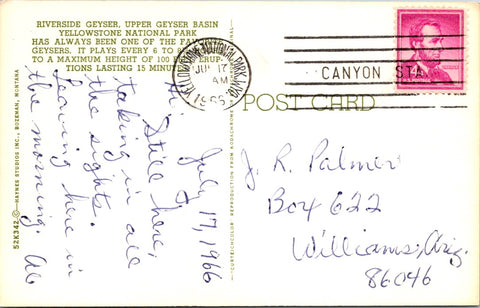 RIVERSIDE GEYSER, UPPER GEYSER BASIN
YELLOWSTONE NATIONAL PARK
HAS ALWAYS BEEN ONE OF THE
GEYSERS. IT PLAYS EVERY 6 TO
TO A MAXIMUM HEIGHT OF 100
TIONS LASTING 15 MINUTES
YELLOWSTONE NATIONAL PARK, WYO
JUL 17
AM
1966
CANYON STA.
POST CARD
July 17, 1966
Hi,
Still here,
taking in all
the sights.
Leaving here in
the morning.
J. R. Palmer
Box 622
Williams, Ariz.
86046
52K342 © — HAYNES STUDIOS INC., BOZEMAN, MONTANA
"CURTEICHCOLOR" REPRODUCTION FROM KODACHROME